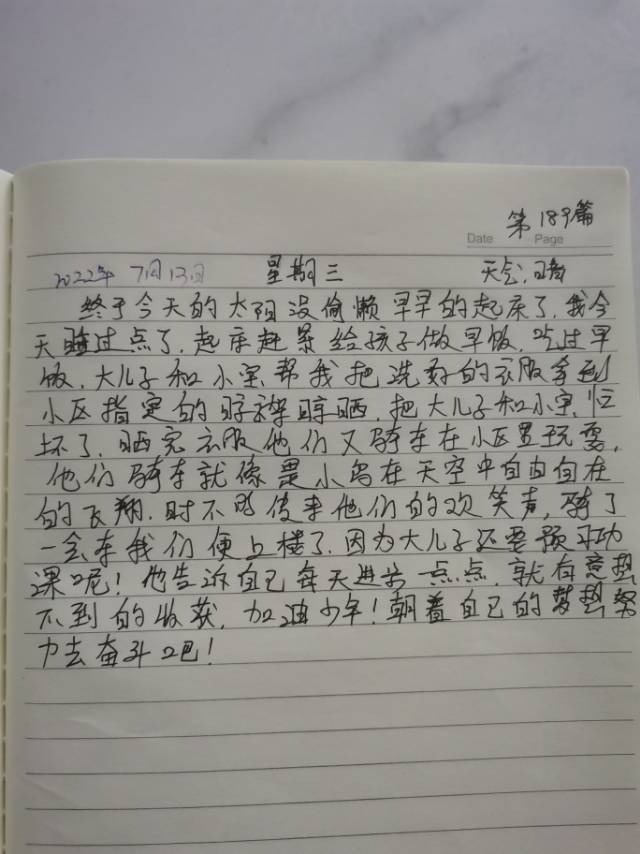 第189篇
Date Page
2022年 7月13日 星期三 天气:晴
终于今天的太阳没偷懒早早的起床了,我今
天睡过点了,起床赶紧给孩子做早饭,吃过早
饭,大儿子和小宝帮我把洗好的衣服拿到
小区指定的晾晒,把大儿子和小宝忙
坏了,晒完衣服,他们又骑车在小区里玩耍,
他们骑车就像是小鸟在天空中自由自在
的飞翔.时不时传来他们的欢笑声,骑了
一会车我们便上楼了,因为大儿子还要预习功
课呢!他告诉自己每天进步一点点,就有意想
不到的收获,加油少年!朝着自己的梦想努
力去奋斗吧!